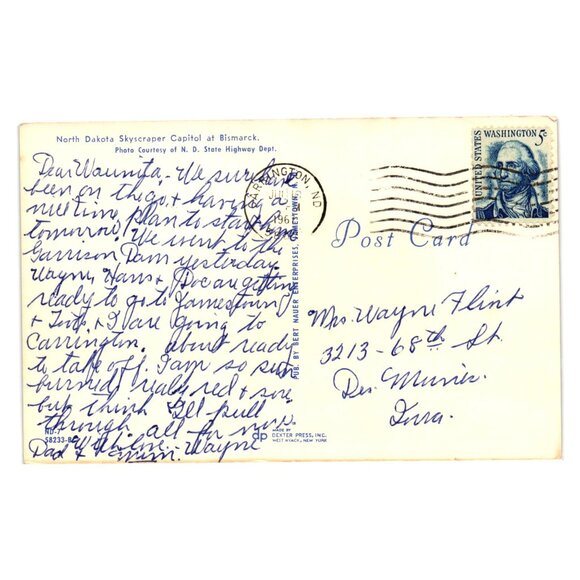 North Dakota Skyscraper Capitol at Bismarck.
Photo Courtesy of N. D. State Highway Dept.
Dear Waunita, - We sure have
been on the go & having a
nice time, plan to start home
tomorrow. We went to the
Garrison Dam yesterday.
Wayne, Hans & Doc are getting
ready to go to Jamestown
& I are going to
Carrington. about ready
to take off. I am so sun
burned, really red & sore
but think I'll pull
through, all for now
With love.
Dad & Mom. Wayne
ND-7
58233-B
PUB. BY BERT NAUER ENTERPRISES, JAMESTOWN, N.
dp
MADE BY
DEXTER PRESS, INC.
WEST NYACK, NEW YORK
CARRINGTON, ND
JUL
196
584
UNITED STATES
WASHINGTON 5c
Post Card
Mrs. Wayne Flint
3213 - 68th St.
Des Moines.
Iowa.